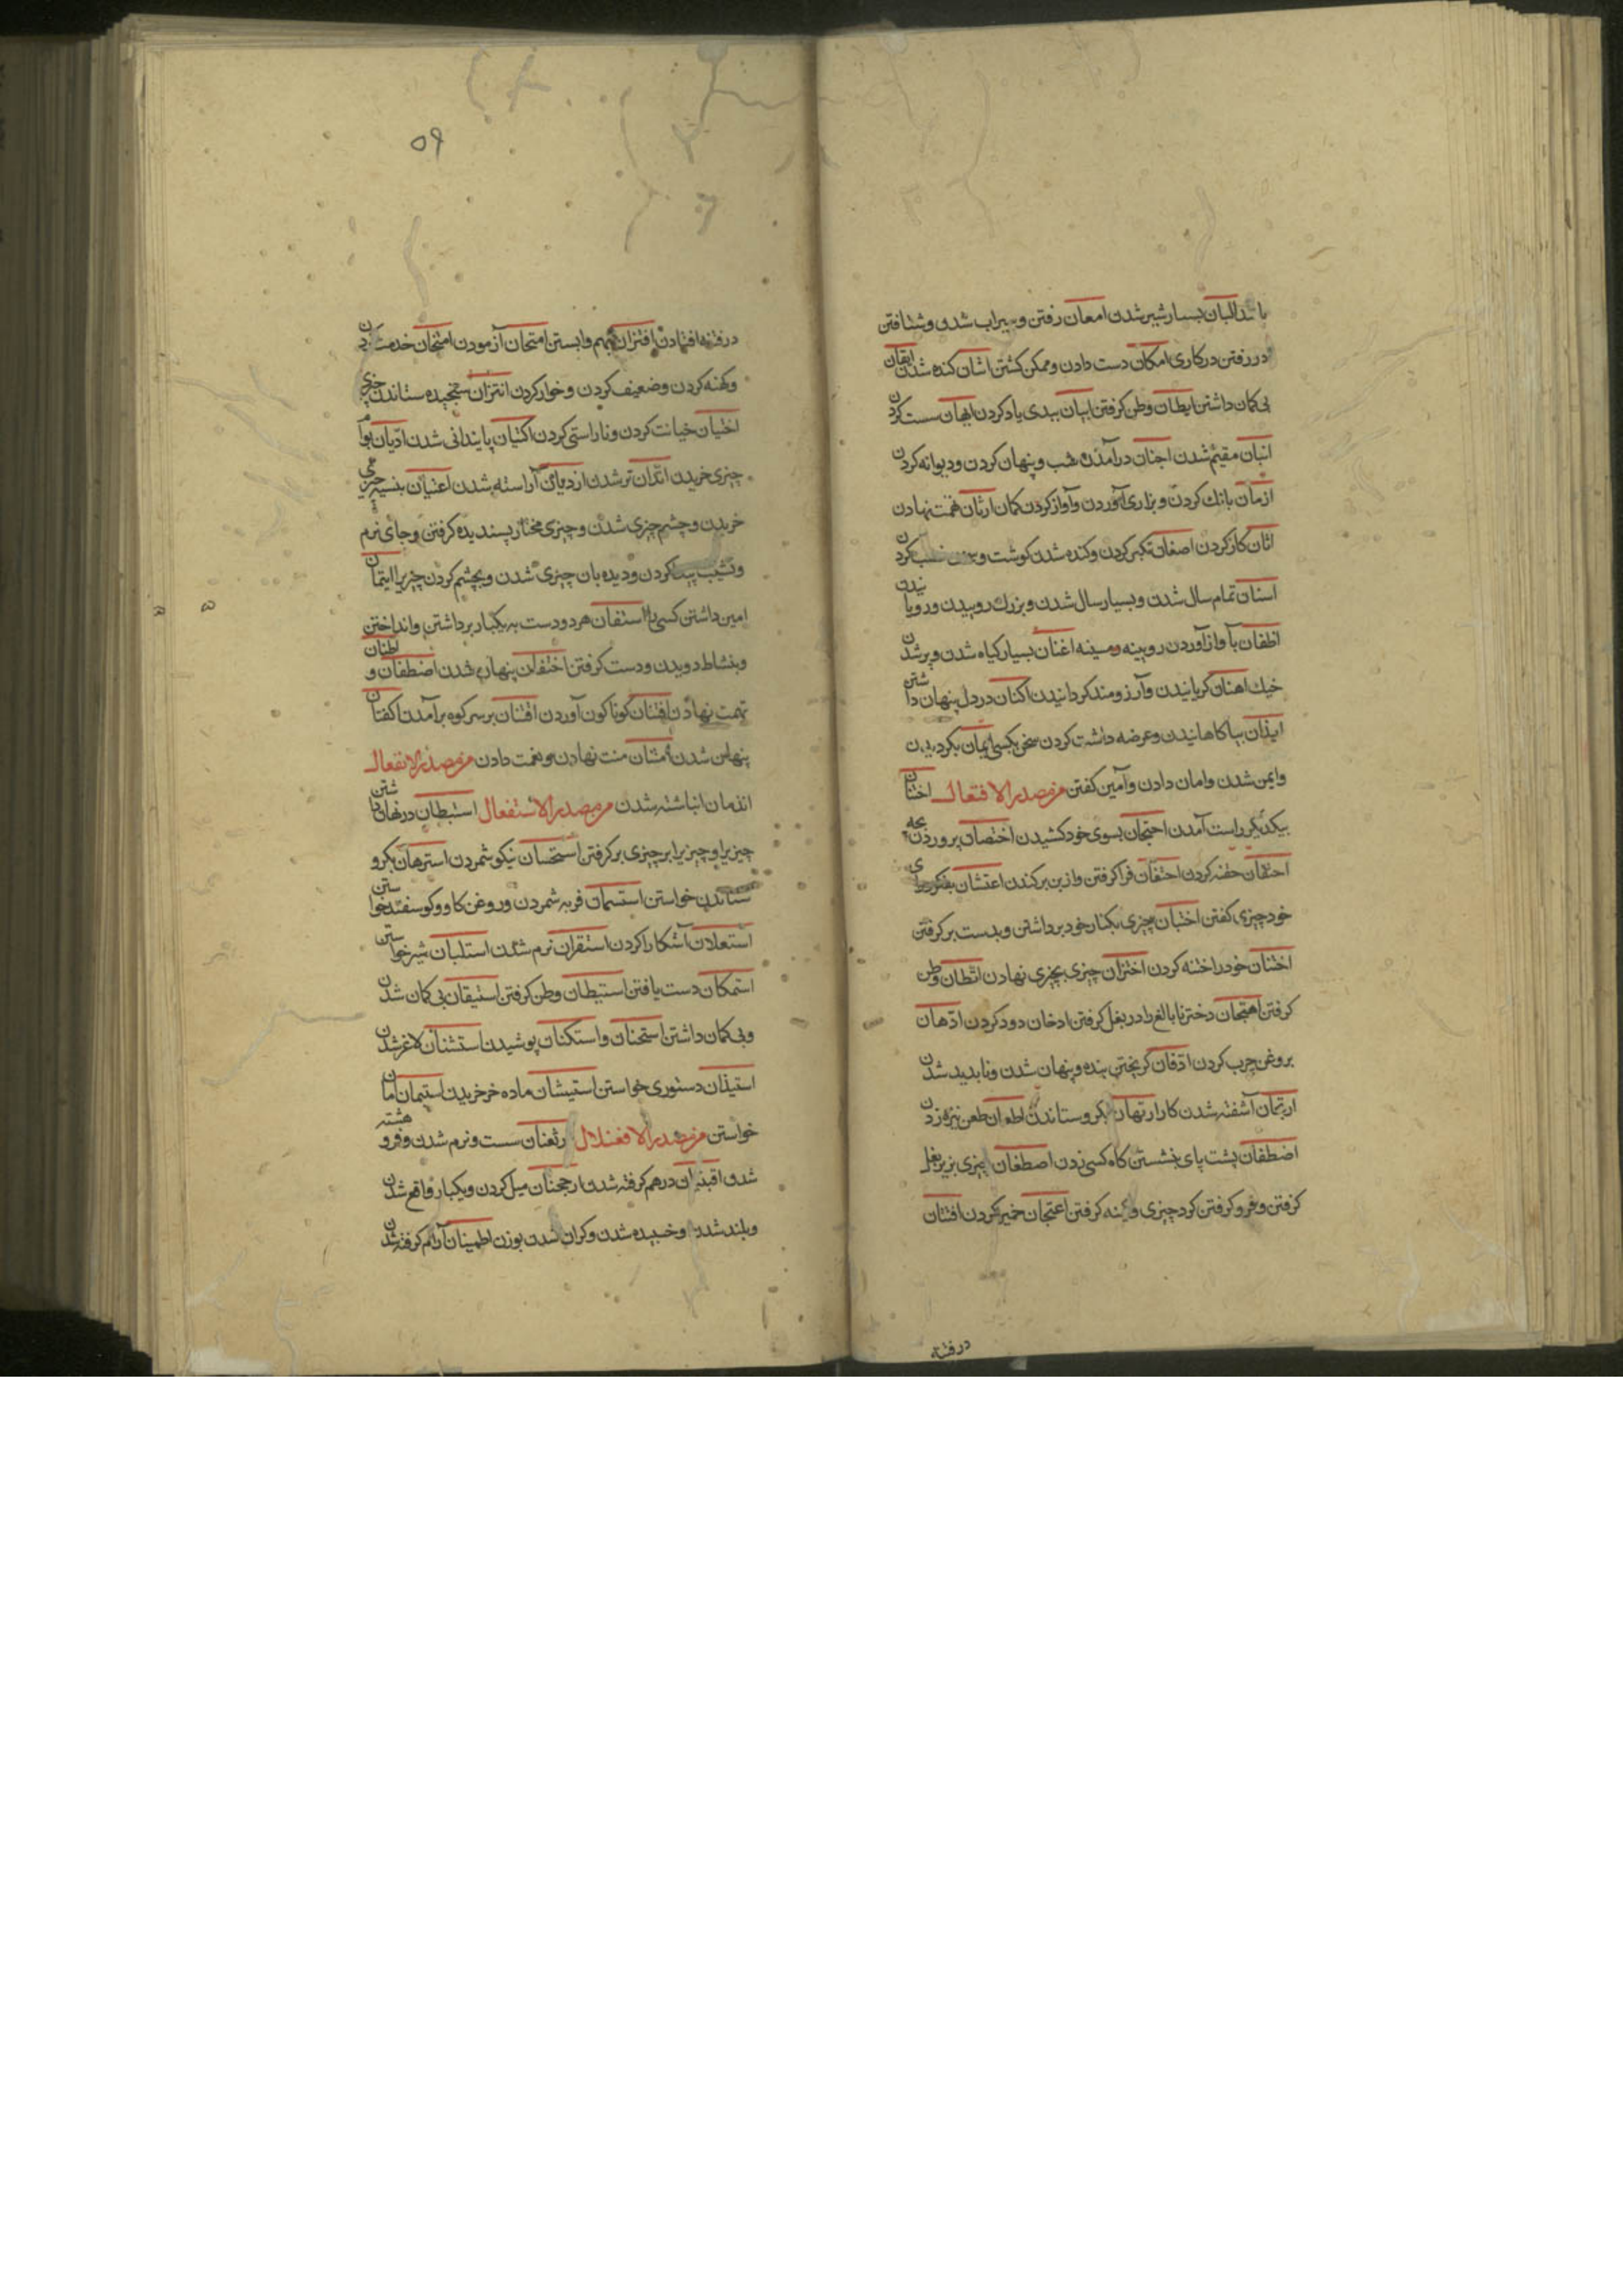 باشد البان بسیار شیر شدن امعان رفتن و سیراب شدن و شتافتن
در رفتن در کاری امکان دست دادن و ممکن کشتن انتان کنده شدن ایقان
بی کمان داشتن ایطان وطن کرفتن ابیان ببدی یاد کردن ایهان سست کردن
ابنان مقیم شدن اجنان در آمدن شب و پنهان کردن و دیوانه کردن
ارنان بانك کردن و بزاری آوردن و آواز کردن کمان اظنان تهمت نهادن
اسنان تمام سال شدن و بسیار سال شدن و بزرك روییدن و رویانیدن
اطنان بآواز آوردن رویینه و مسینه اغنان بسیار کیاه شدن و پر شدن
خیك اهنان کریانیدن و آرزومند کردانیدن اکنان در دل پنهان داشتن
ایذان بیاکاهانیدن و عرضه داشت کردن سخن بکسی ایمان بکرویدن
وایمن شدن وامان دادن و آمین کفتن من مصدر الافتعال اختتان
بیکدیکر راست آمدن احتجان بسوی خود کشیدن احتضان پروردن بچه
احتقان حقنه کردن احتفان فرا کرفتن و از بن برکندن اعتشان بفکر
خود چیزی کفتن اختبان چیزی بکنار خود برداشتن و بدست بر کرفتن
اختتان خود را ختنه کردن اختزان چیزی بچیزی نهادن اتطان وطن
کرفتن اهتجان دختر نابالغ را در بغل کرفتن ادخان دود کردن ادهان
بروغن چرب کردن ادفان کریختن بنده و پنهان شدن و نابدید شدن
ارتجان آشفته شدن کار ارتهان بکرو ستاندن اطعان طعن نیزه زدن
اضطفان پشت پای بنشستن کاه کسی زدن اضطغان چیزی بزیر بغل
کرفتن و فرو کرفتن کرد چیزی و کینه کرفتن اعتجان خمیر کردن افتتان
در فتنه
۵۶
در فتنه افتادن اقتران بهم وابستن امتحان آزمودن امتهان خدمت کردن
و کهنه کردن و ضعیف کردن و خوار کردن اتزان سنجیده ستاندن چیزی
اختیان خیانت کردن و ناراستی کردن اکتیان پایندانی شدن ادیان بوام
چیزی خریدن اتدان تر شدن ازدیان آراسته شدن اعتیان بنسیه چیزی
خریدن و چشم چیزی شدن و چیزی مختار پسندیده کرفتن و جای نرم
و نشیب پیدا کردن و دیده بان چیزی شدن و بچشم کردن چیزیرا ایتمان
امین داشتن کسی را استفان هر دو دست به یکبار برداشتن و انداختن
و بنشاط دویدن و دست کرفتن اختفان پنهان شدن اضطفان و اظنان
تهمت نهادن افتنان کوناکون آوردن اقتنان بر سر کوه بر آمدن اکتنان
پنهان شدن امتنان منت نهادن و نعمت دادن من مصدر الانفعال
اندمان انباشته شدن من مصدر الاستفعال استبطان در نهان داشتن
چیزیرا و چیزیرا بر چیزی بر کرفتن استحسان نیکو شمردن استرهان بکرو
ستاندن خواستن استسمان فربه شمردن و روغن کاو و کوسفند خواستن
استعلان آشکارا کردن استقران نرم شدن استلبان شیر خواستن
استمکان دست یافتن استیطان وطن کرفتن استیقان بی کمان شدن
و بی کمان داشتن استجنان و استکنان پوشیدن استشنان لاغر شدن
استیذان دستوری خواستن استیتان ماده خر خریدن استیمان امان
خواستن من مصدر الافعنلال ارثعنان سست و نرم شدن و فرو هشته
شدن اقبنان در هم کرفته شدن ارجحنان میل کردن و بیکبار واقع شدن
و بلند شدن و خسبیده شدن و کران شدن بوزن اطمینان آرام کرفته شدن